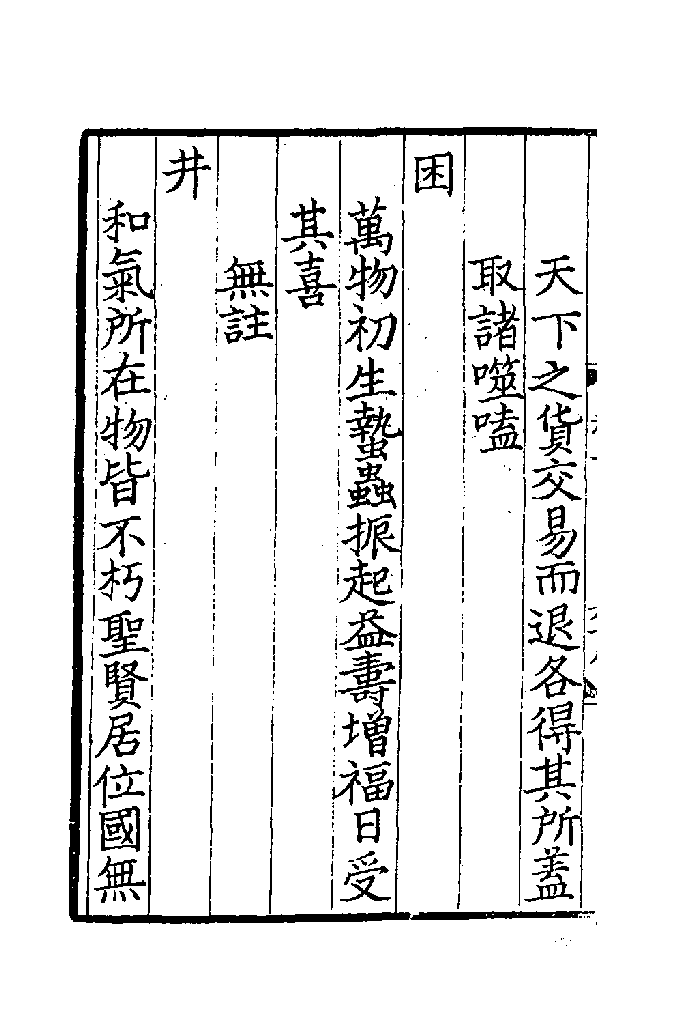 天下之貨交易而退各得其所蓋
取諸噬嗑
困
萬物初生蟄蟲振起益壽增福日受
其喜
無註
井
和氣所在物皆不朽聖賢居位國無